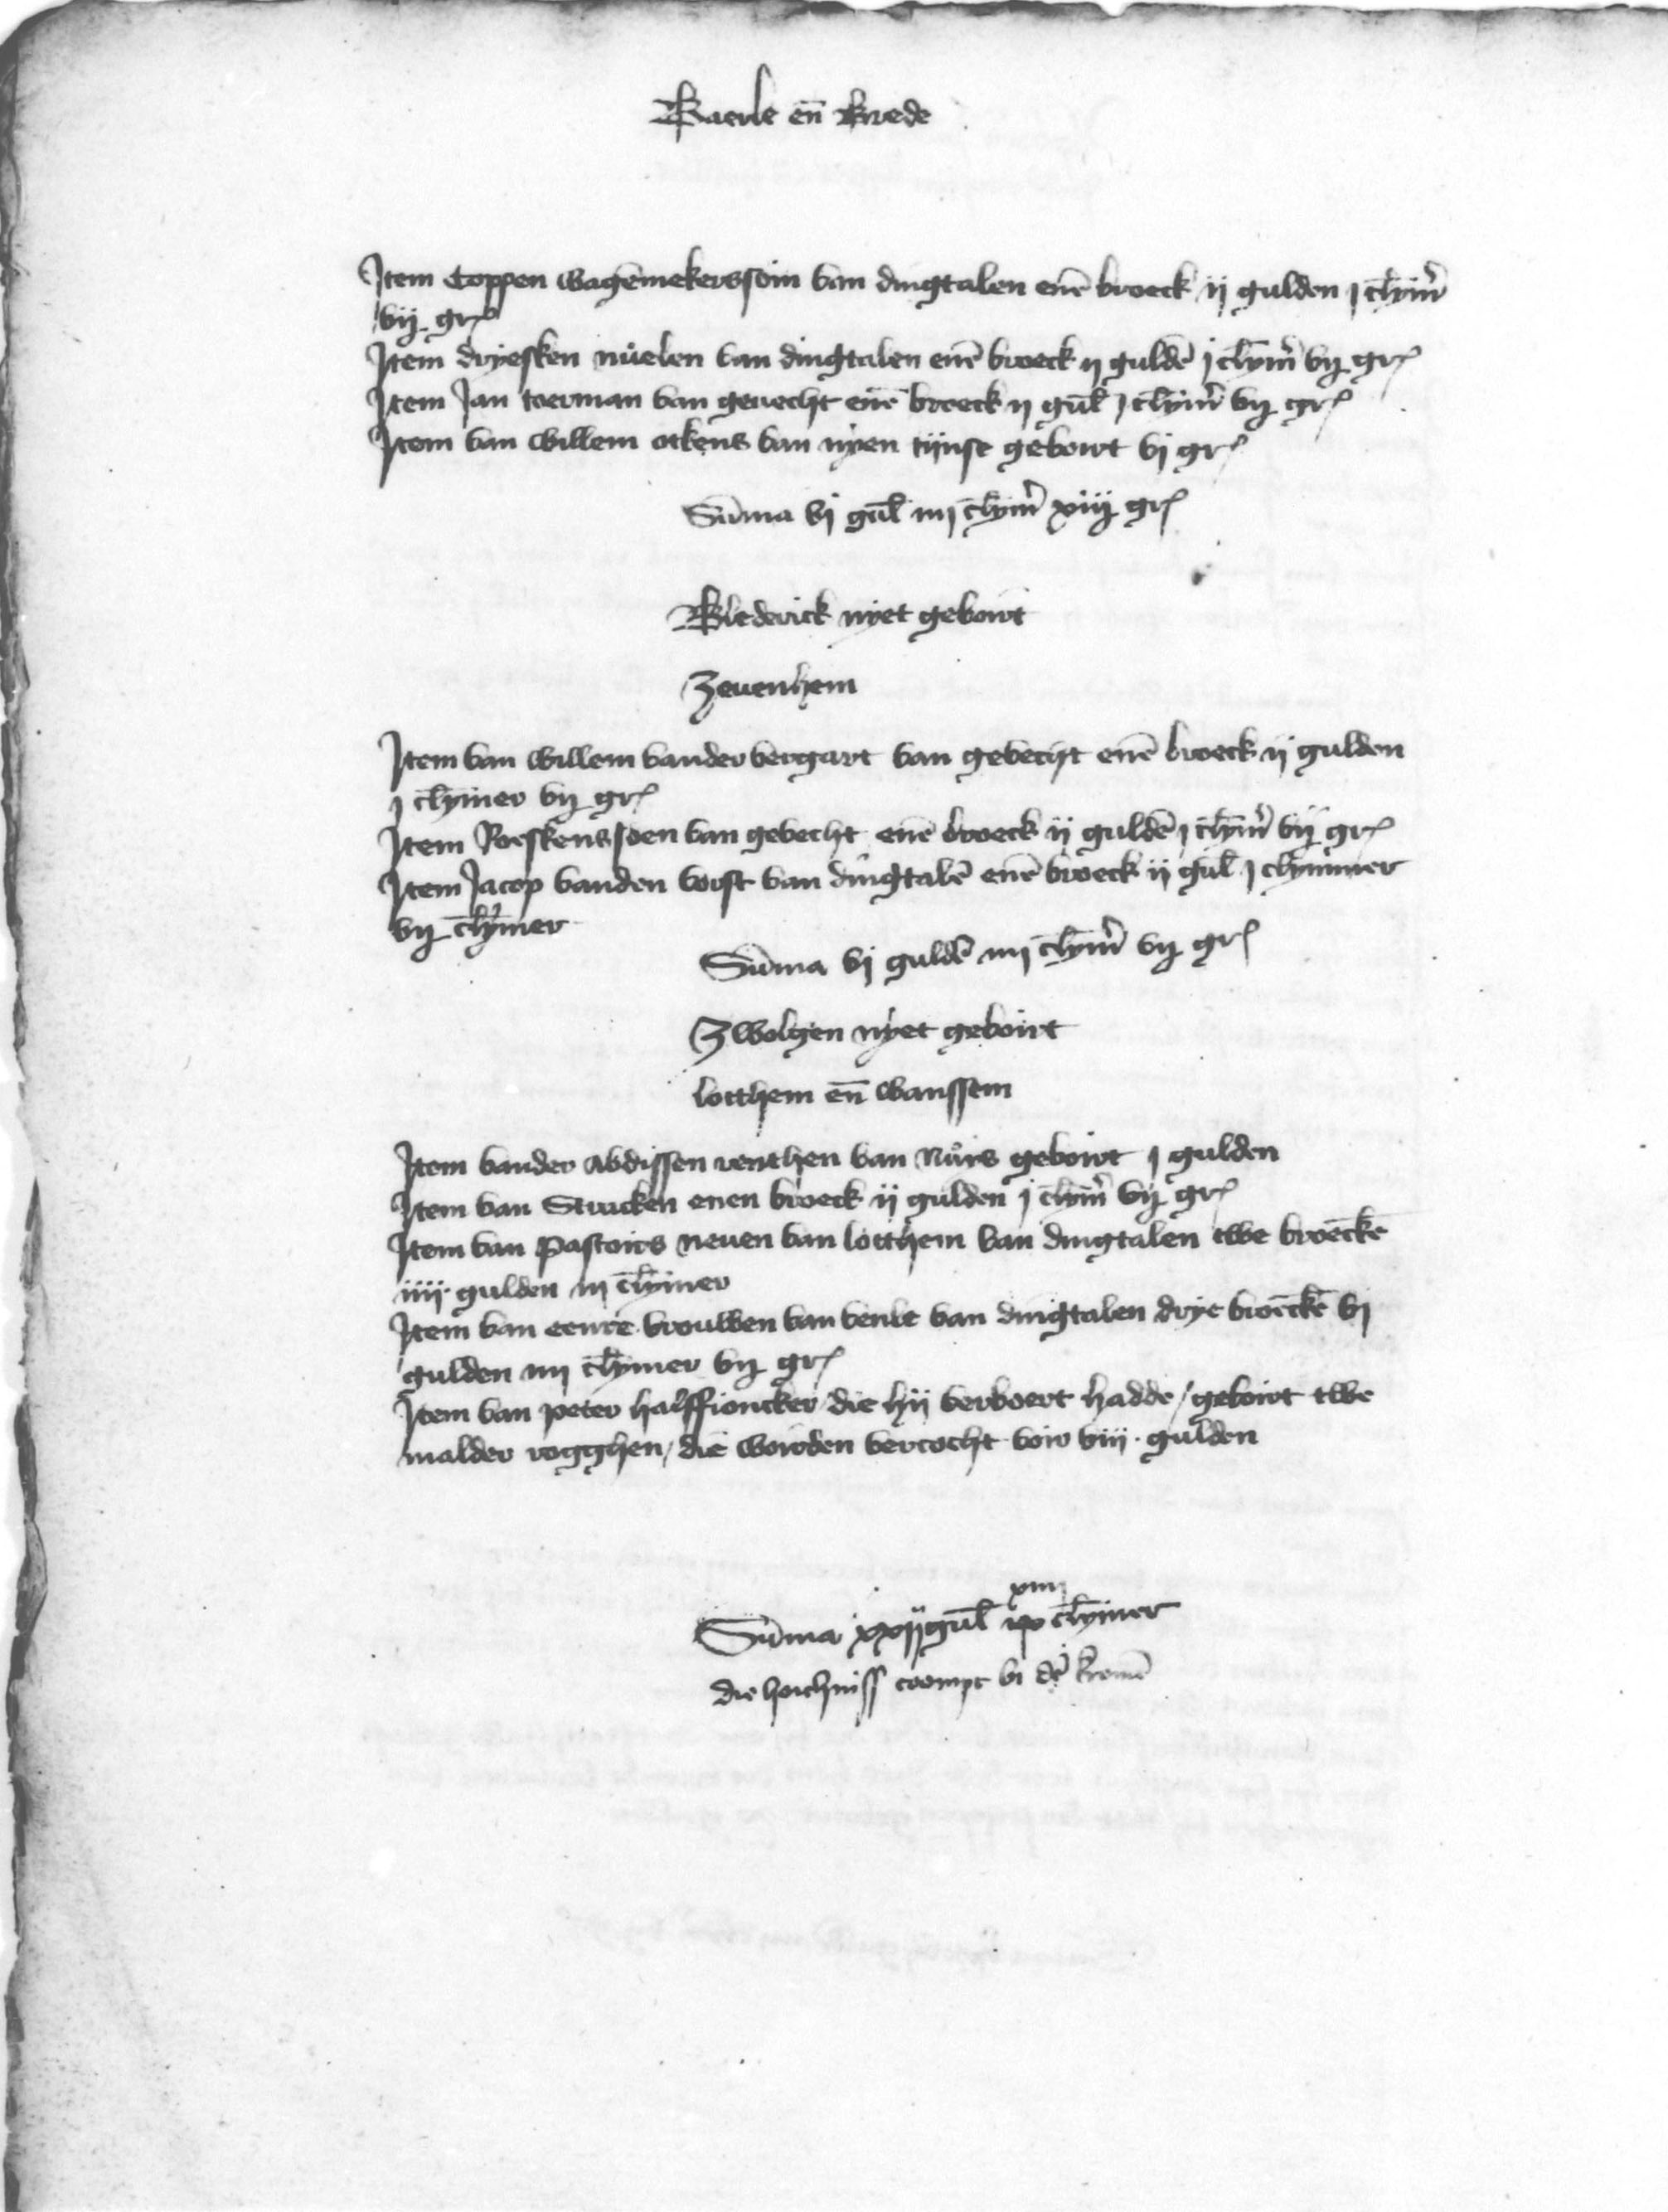 Baerle en̄ Brede
Item Coppen wagēmekerssoin van dingtalen enē broeck ij gulden j clȳm̄
vij gr
Item dryesken nůelen van dingtalen enē broeck ij guldē j clȳm̄ vij gr
Item Jan toerman van geuecht enē broeck ij gul̄ j clȳm̄ vij gr
Item van willem otkens van nyen tijnse geboirt vj gr
Sūma vj gul̄ iiij clȳm̄ xiij gr
Blederick nyet geboirt
Zeuenhem
Item van willem vander bergart van gevecht enē broeck ij gulden
j clȳmer vij gr
Item Roeskenssoen van gevecht enē broeck ij guldē j clȳm̄ vij gr
Item Jacop vanden vorst van dingtalē enē broeck ij gul̄ j clymmer
vij clȳmer
Sūma vj guldē iiij clȳm̄ vij gr
Zwolgen nyet geboirt
lotthem en̄ wanssem
Item vander abdissen renthen van Nůris geboirt j gulden
Item van Stuicken enen broeck ij gulden j clȳm̄ vij gr
Item van Pastoirs neuen van lotthem van dingtalen twe broēckē
iiij gulden iij clȳmer
Item van eenre vrouwen van venle van dingtalen drye broēckē vj
gulden iiij clȳmer vij gr
Item van peter halffioncker die hij verboert hadde / geboirt twe
malder rogghen / die woirden vercocht voir viij gulden
xiiij
Sūma xxij gul̄ ix clȳmer
die hoichniss coompt bi dē